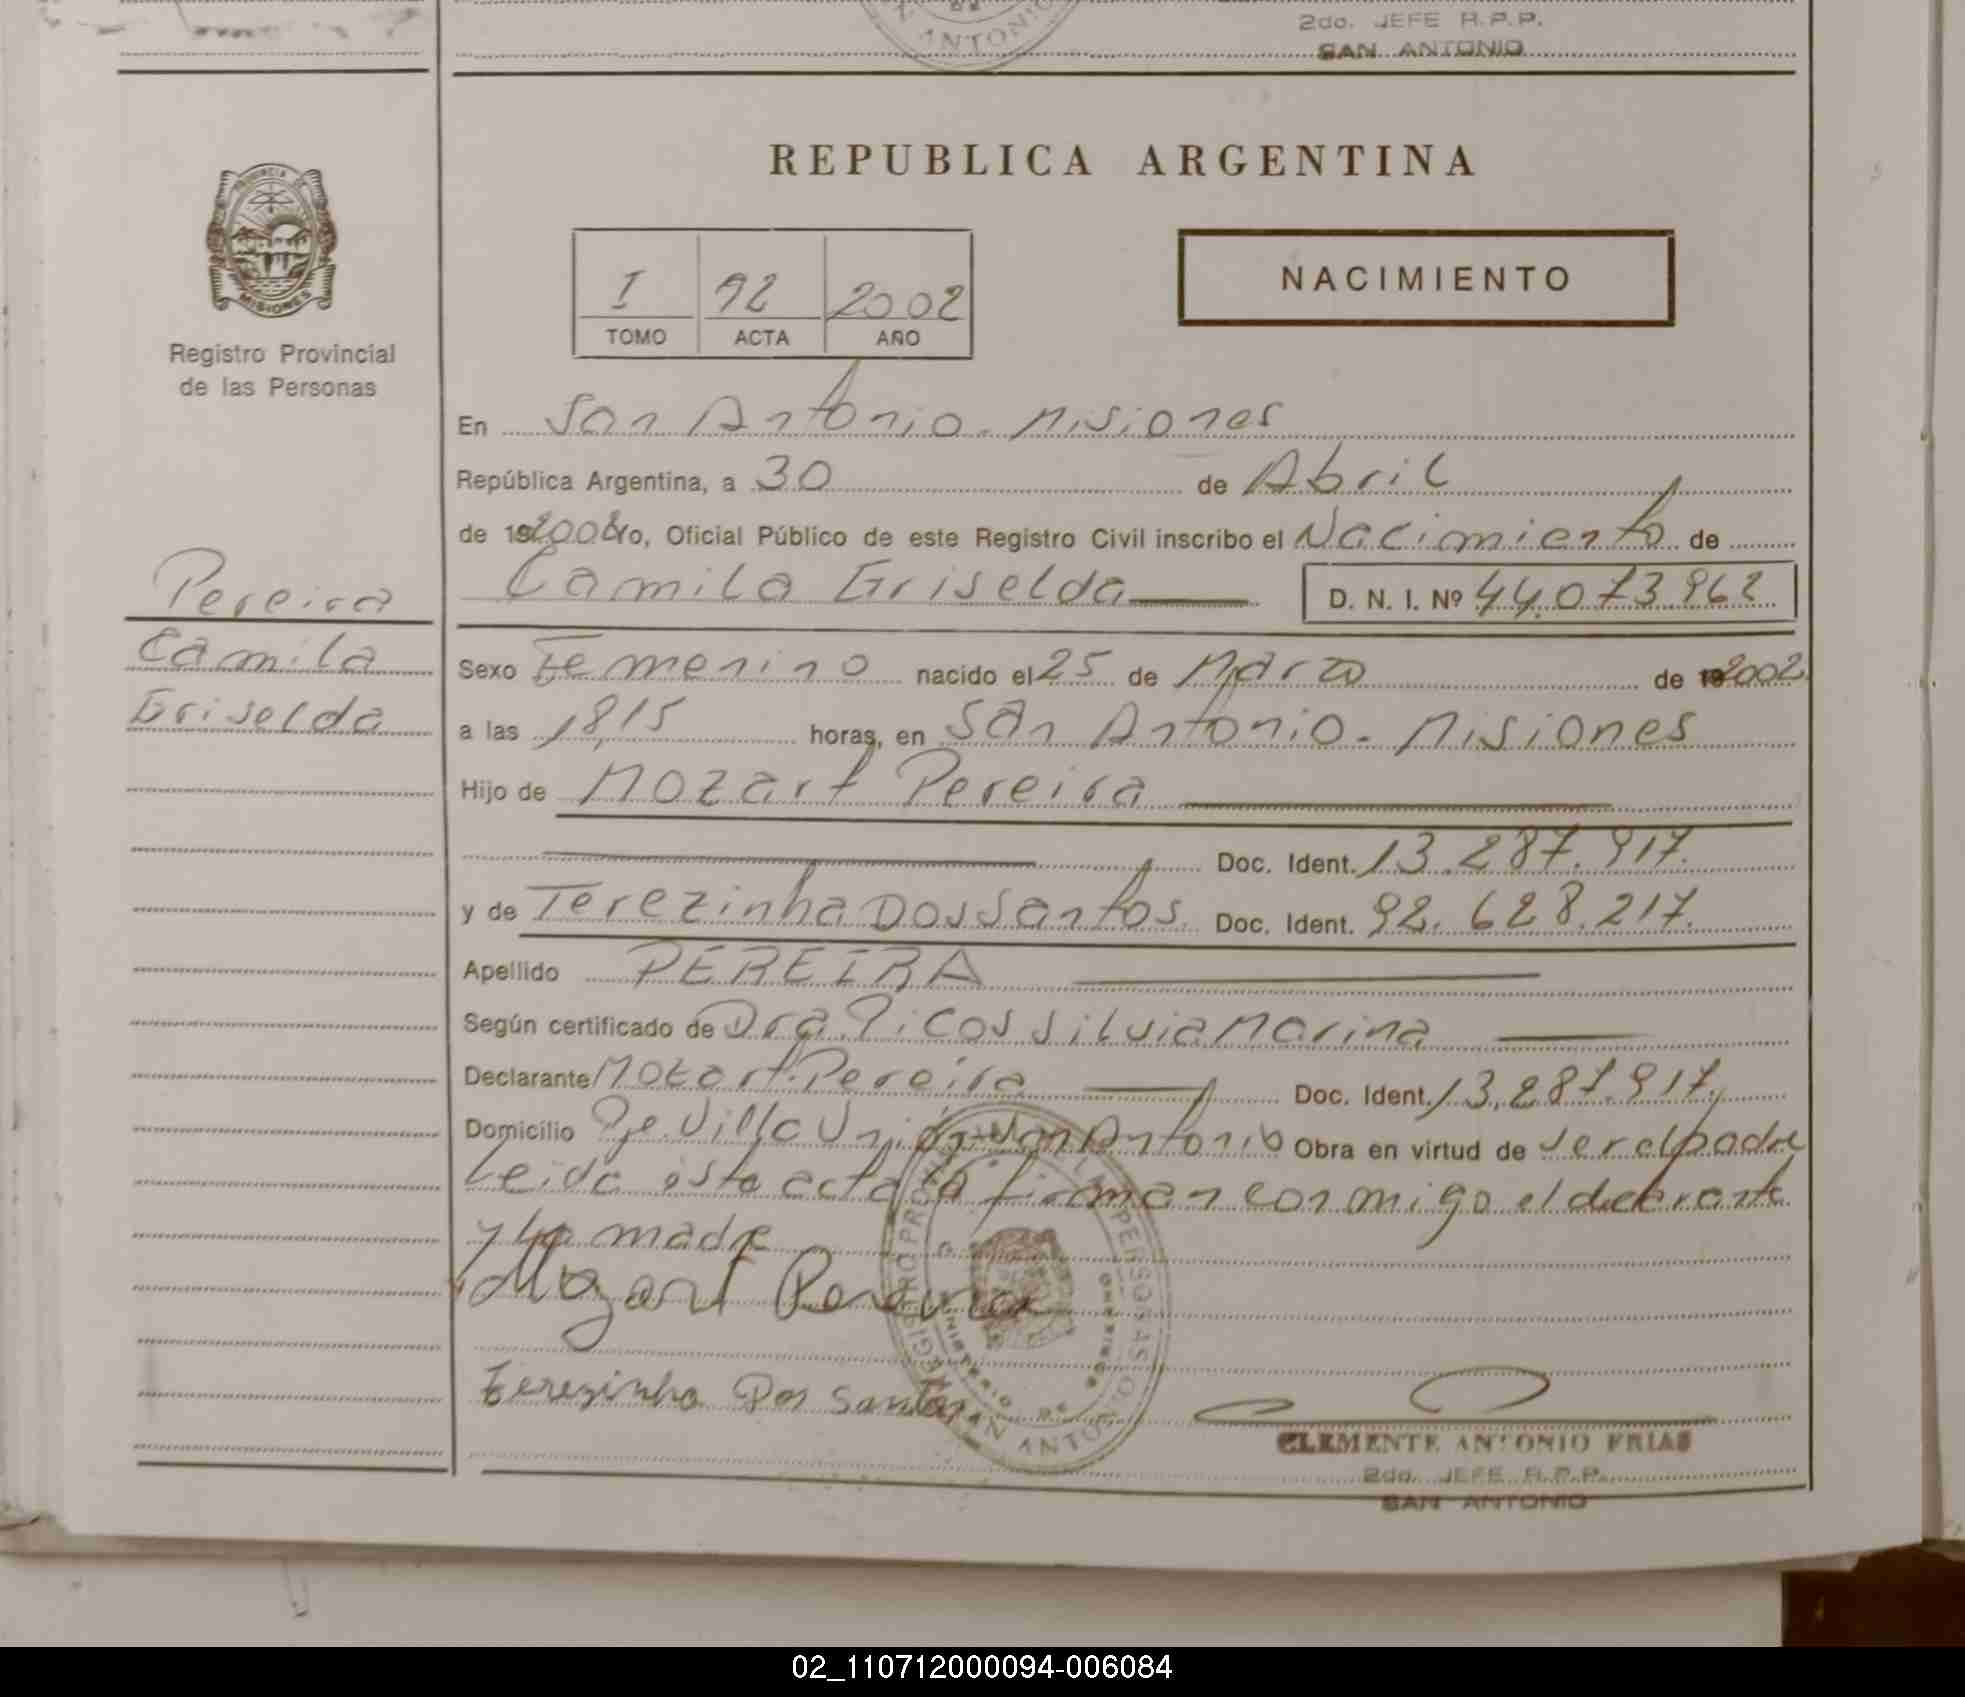 2do. JEFE R.P.P.
SAN ANTONIO
ANTONIO
PROVINCIA DE
MISIONES
Registro Provincial
de las Personas
REPUBLICA ARGENTINA
I 92 2002
TOMO ACTA AÑO
NACIMIENTO
En San Antonio - Misiones
República Argentina, a 30 de Abril
de 192002 Yo, Oficial Público de este Registro Civil inscribo el Nacimiento de
Camila Griselda D. N. I. Nº 44.073.962
Pereira
Camila
Griselda
Sexo Femenino nacido el 25 de Marzo de 192002
a las 18,15 horas, en San Antonio - Misiones
Hijo de Mozart Pereira
Doc. Ident. 13.287.917.
y de Terezinha Dos Santos. Doc. Ident. 92.628.217.
Apellido PEREIRA
Según certificado de Dra. Picos Silvia Marina
Declarante Mozart Pereira Doc. Ident. 13.287.917.
Domicilio Pje. Villa Unión - San Antonio Obra en virtud de ser el padre
Leida ésta acta la firman conmigo el declarante
y la madre
Mozart Pereira
Terezinha Dos Santos
REGISTRO PROVINCIAL DE LAS PERSONAS
MINISTERIO DE GOBIERNO
SAN ANTONIO
CLEMENTE ANTONIO FRIAS
2do. JEFE R.P.P.
SAN ANTONIO
02_110712000094-006084